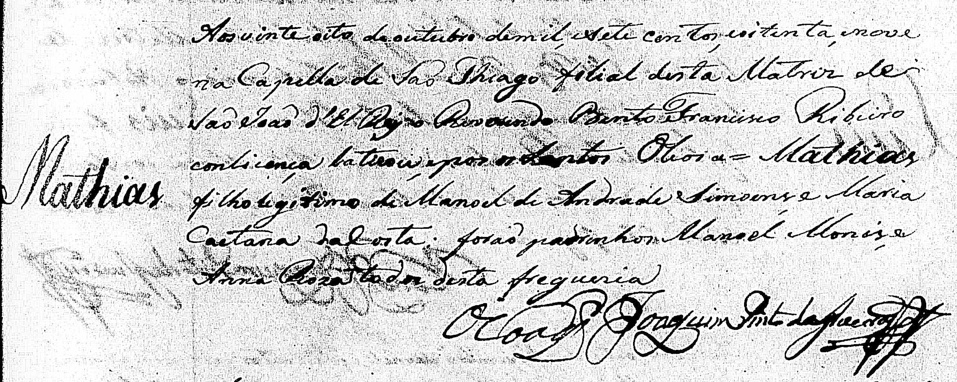 Aos vinte oito de outubro de mil, e sete centos, e oitenta, e nove
na Capella de Sao Thiago filial desta Matriz de
Sao Joao d'El Rey o Reverendo Bento Francisco Ribeiro
com licença batizou, e pos os Santos Oleos a = Mathias
Mathias
filho legitimo de Manoel de Andrade Simoens e Maria
Caetana da Costa: forao padrinhos Manoel Moniz, e
Anna Roza todos desta freguezia
O Coadjor Joaquim Pinto da Silveira